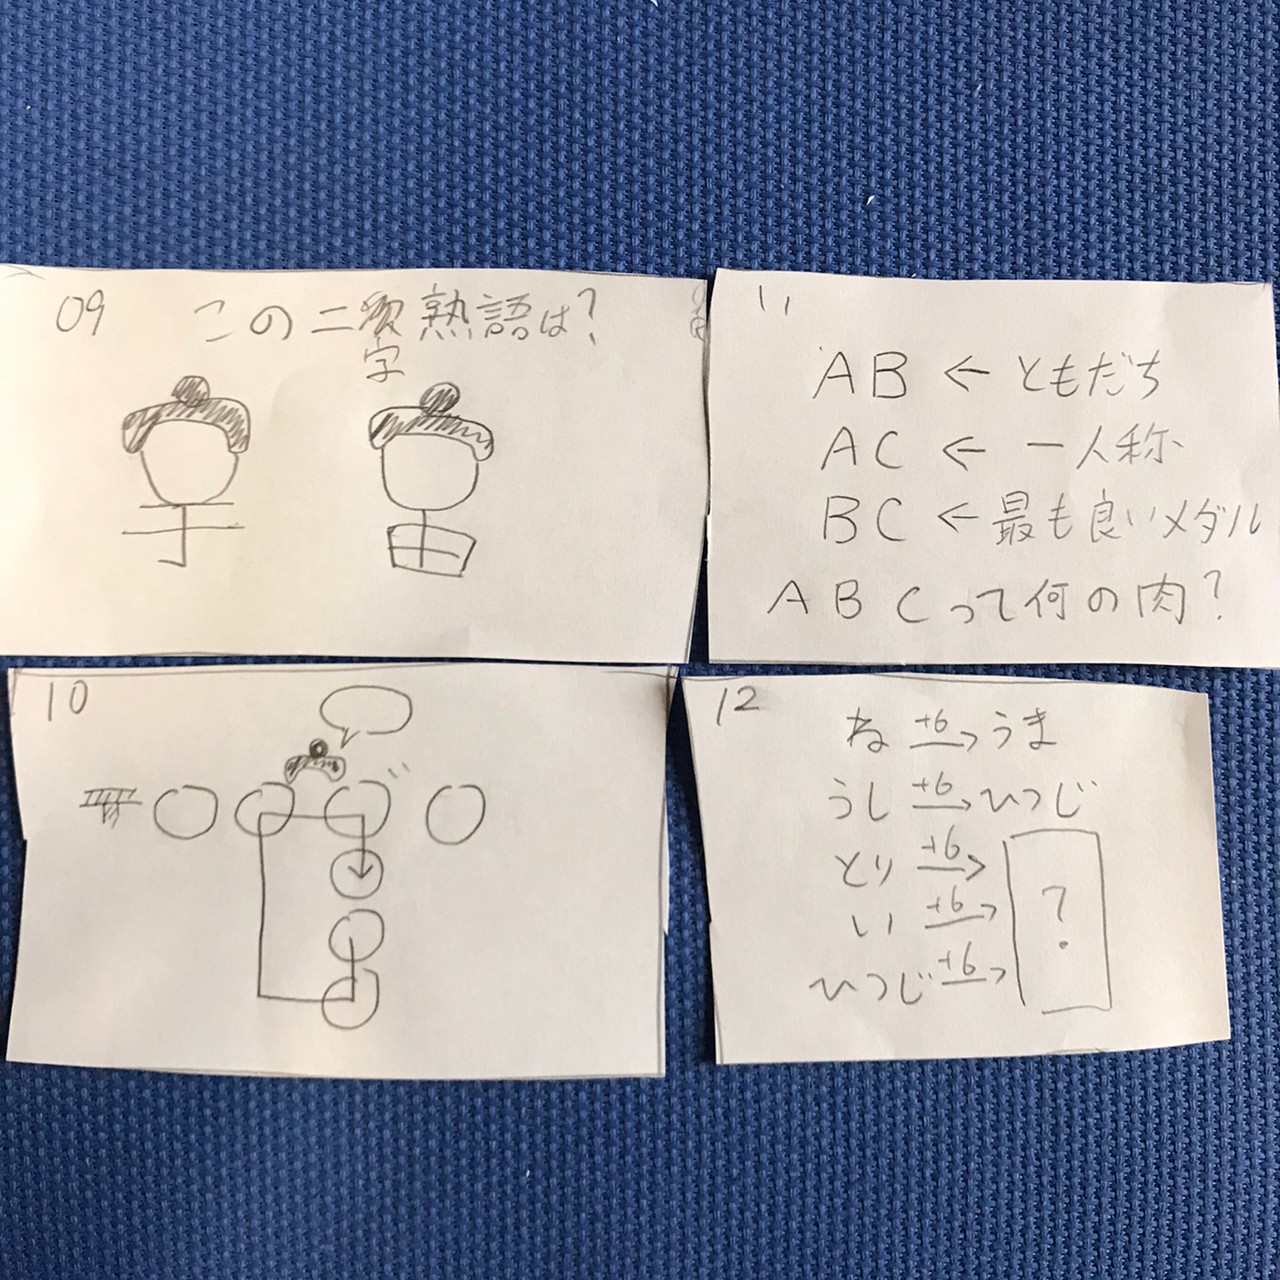 09 この二字熟語は?
11
AB ← ともだち
AC ← 一人称
BC ← 最も良いメダル
ABCって何の肉?
10
12
ね +6→ うま
うし +6→ ひつじ
とり +6→
い +6→
ひつじ +6→
?